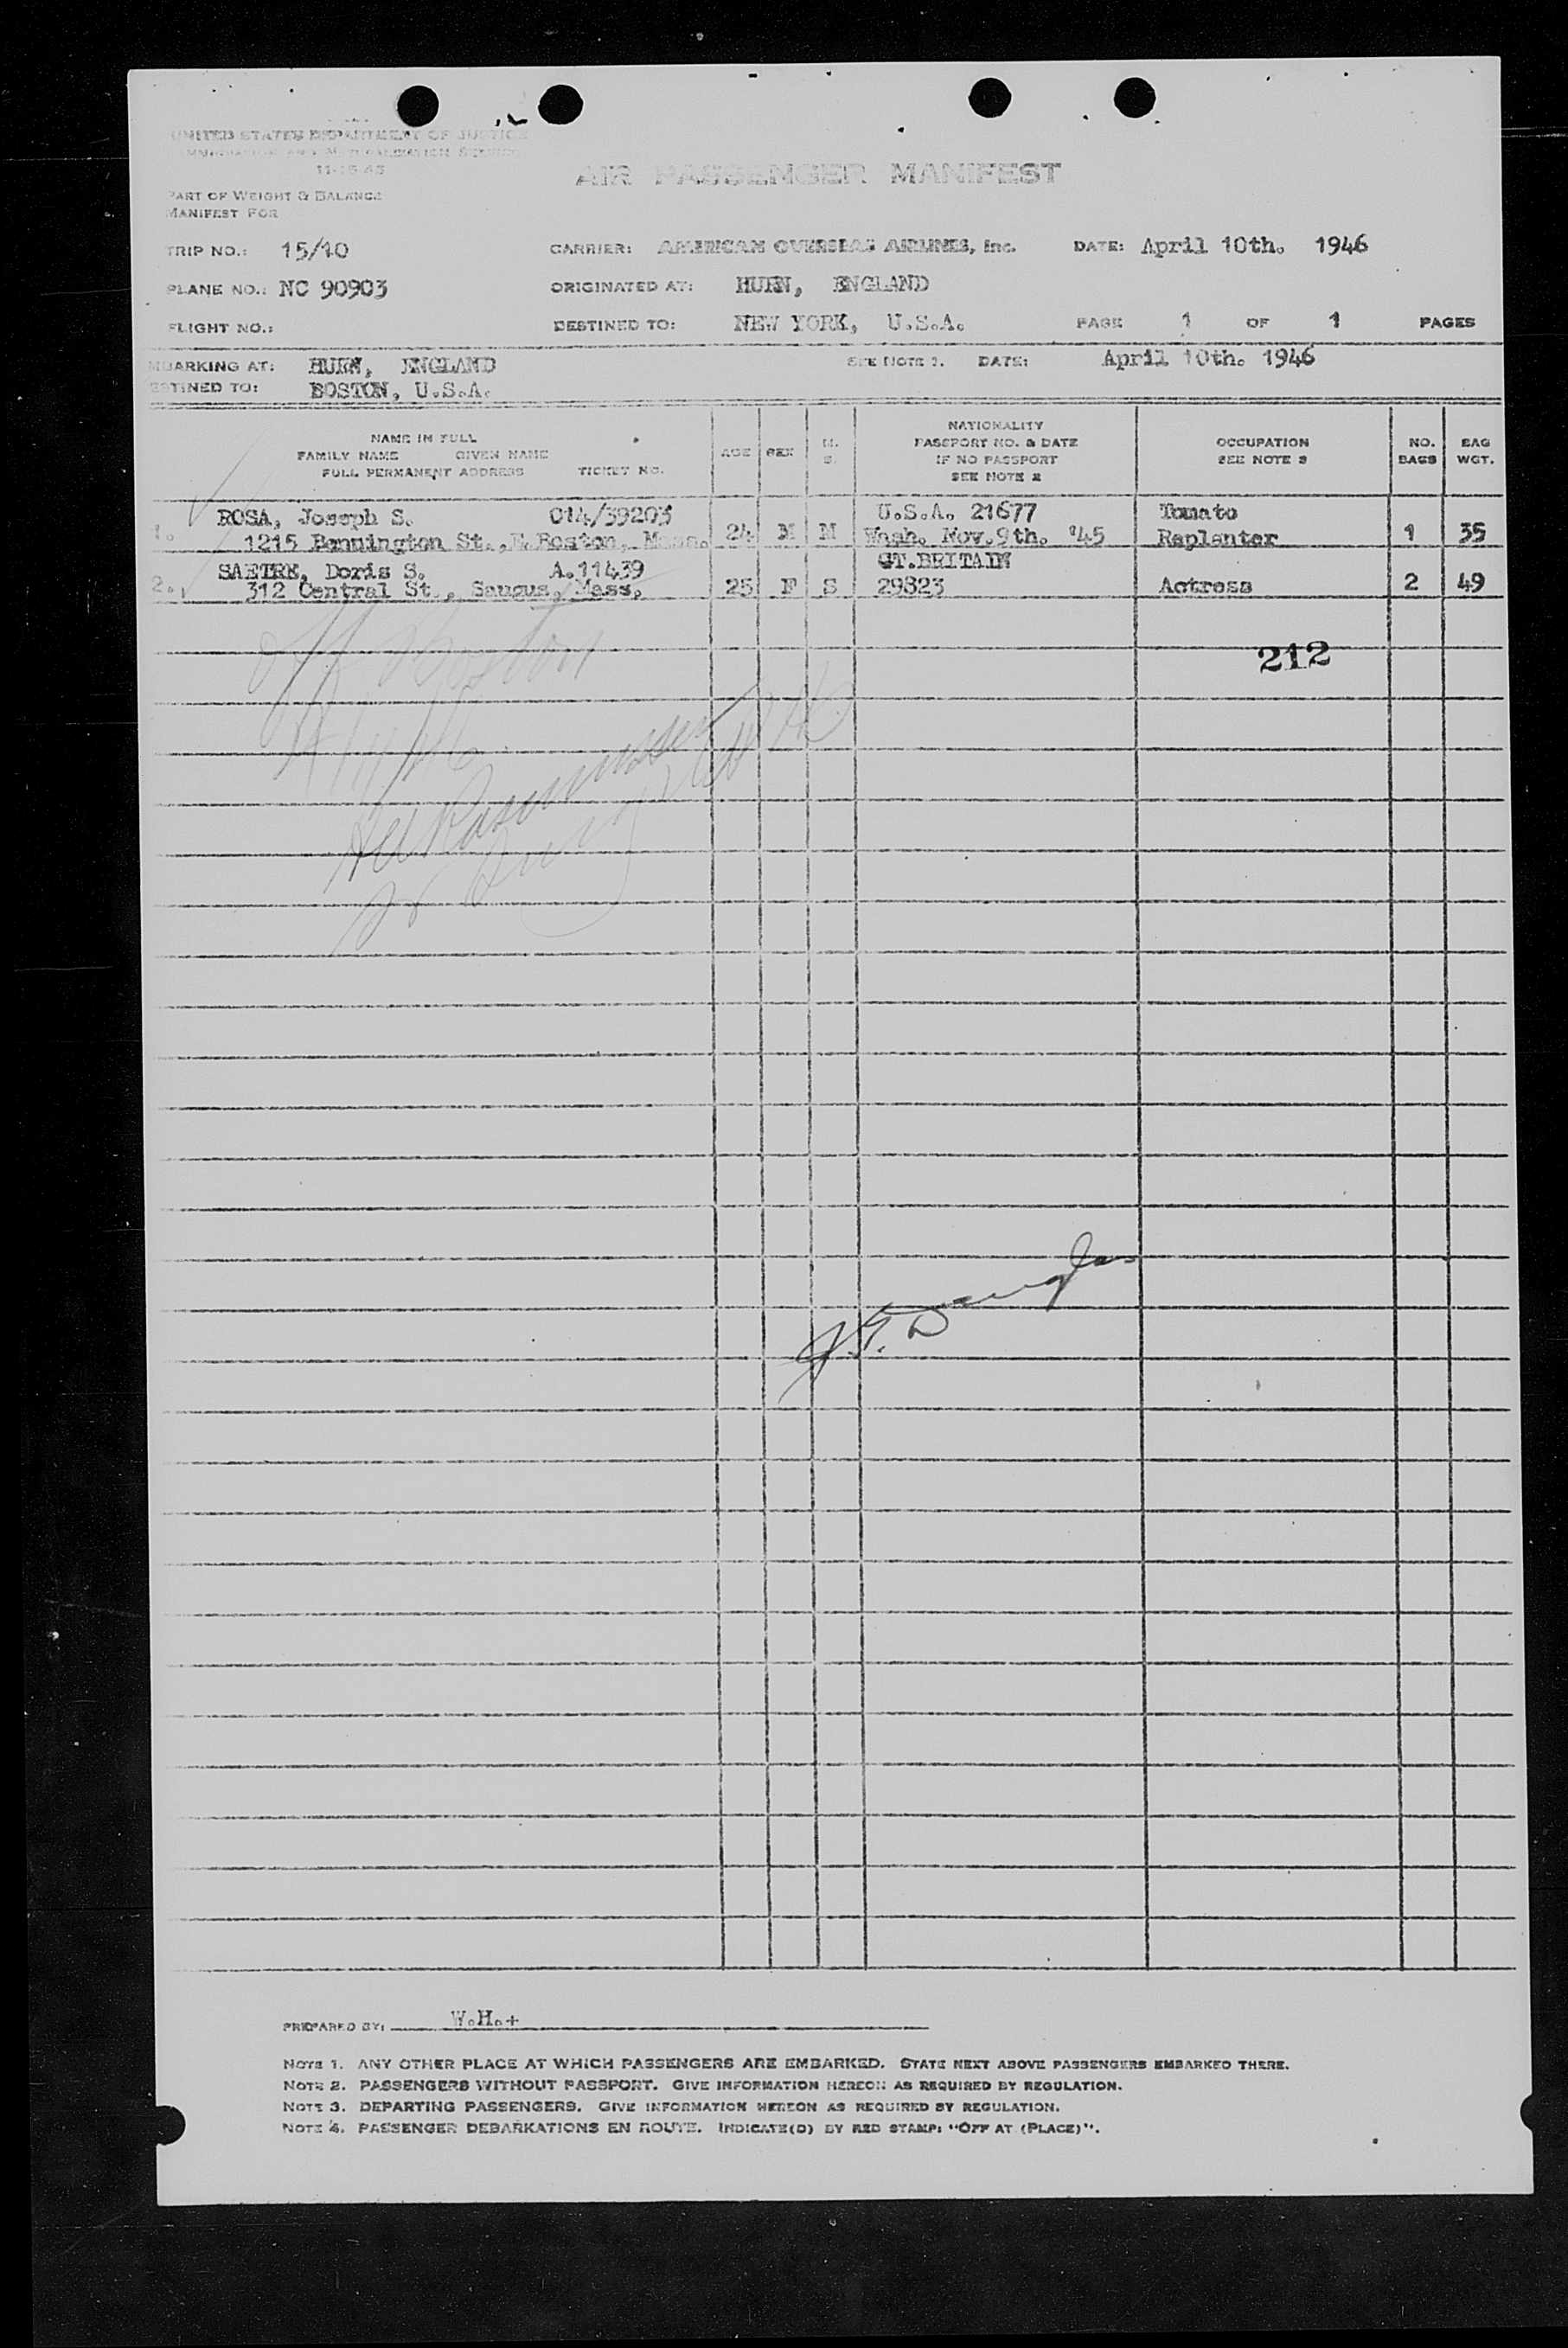 UNITED STATES DEPARTMENT OF JUSTICE
IMMIGRATION AND NATURALIZATION SERVICE
11-15-45
AIR PASSENGER MANIFEST
PART OF WEIGHT & BALANCE
MANIFEST FOR
TRIP NO.: 15/10 CARRIER: AMERICAN OVERSEAS AIRLINES, Inc. DATE: April 10th. 1946
PLANE NO.: NC 90903 ORIGINATED AT: HURN, ENGLAND
FLIGHT NO.: DESTINED TO: NEW YORK, U.S.A. PAGE 1 OF 1 PAGES
MBARKING AT: HURN, ENGLAND SEE NOTE 1. DATE: April 10th. 1946
ESTINED TO: BOSTON, U.S.A.
NAME IN FULL
FAMILY NAME GIVEN NAME
FULL PERMANENT ADDRESS TICKET NO.
AGE SEX M. S.
NATIONALITY
PASSPORT NO. & DATE
IF NO PASSPORT
SEE NOTE 2
OCCUPATION
SEE NOTE 3
NO. BAGS
BAG WGT.
ROSA, Joseph S. 014/39203 U.S.A. 21677 Tomato
1. 1215 Bennington St., E.Boston, Mass. 24 M M Wash. Nov.9th. '45 Replanter 1 35
SAETRE, Doris S. A.11439 GT.BRITAIN
2. 312 Central St., Saugus, Mass. 25 F S 29823 Actress 2 49
212
Off Boston
4/11/46
Rasmussen
J.T. Douglas
PREPARED BY: W.H.+
NOTE 1. ANY OTHER PLACE AT WHICH PASSENGERS ARE EMBARKED. STATE NEXT ABOVE PASSENGERS EMBARKED THERE.
NOTE 2. PASSENGERS WITHOUT PASSPORT. GIVE INFORMATION HEREON AS REQUIRED BY REGULATION.
NOTE 3. DEPARTING PASSENGERS. GIVE INFORMATION HEREON AS REQUIRED BY REGULATION.
NOTE 4. PASSENGER DEBARKATIONS EN ROUTE. INDICATE(D) BY RED STAMP: "OFF AT (PLACE)".